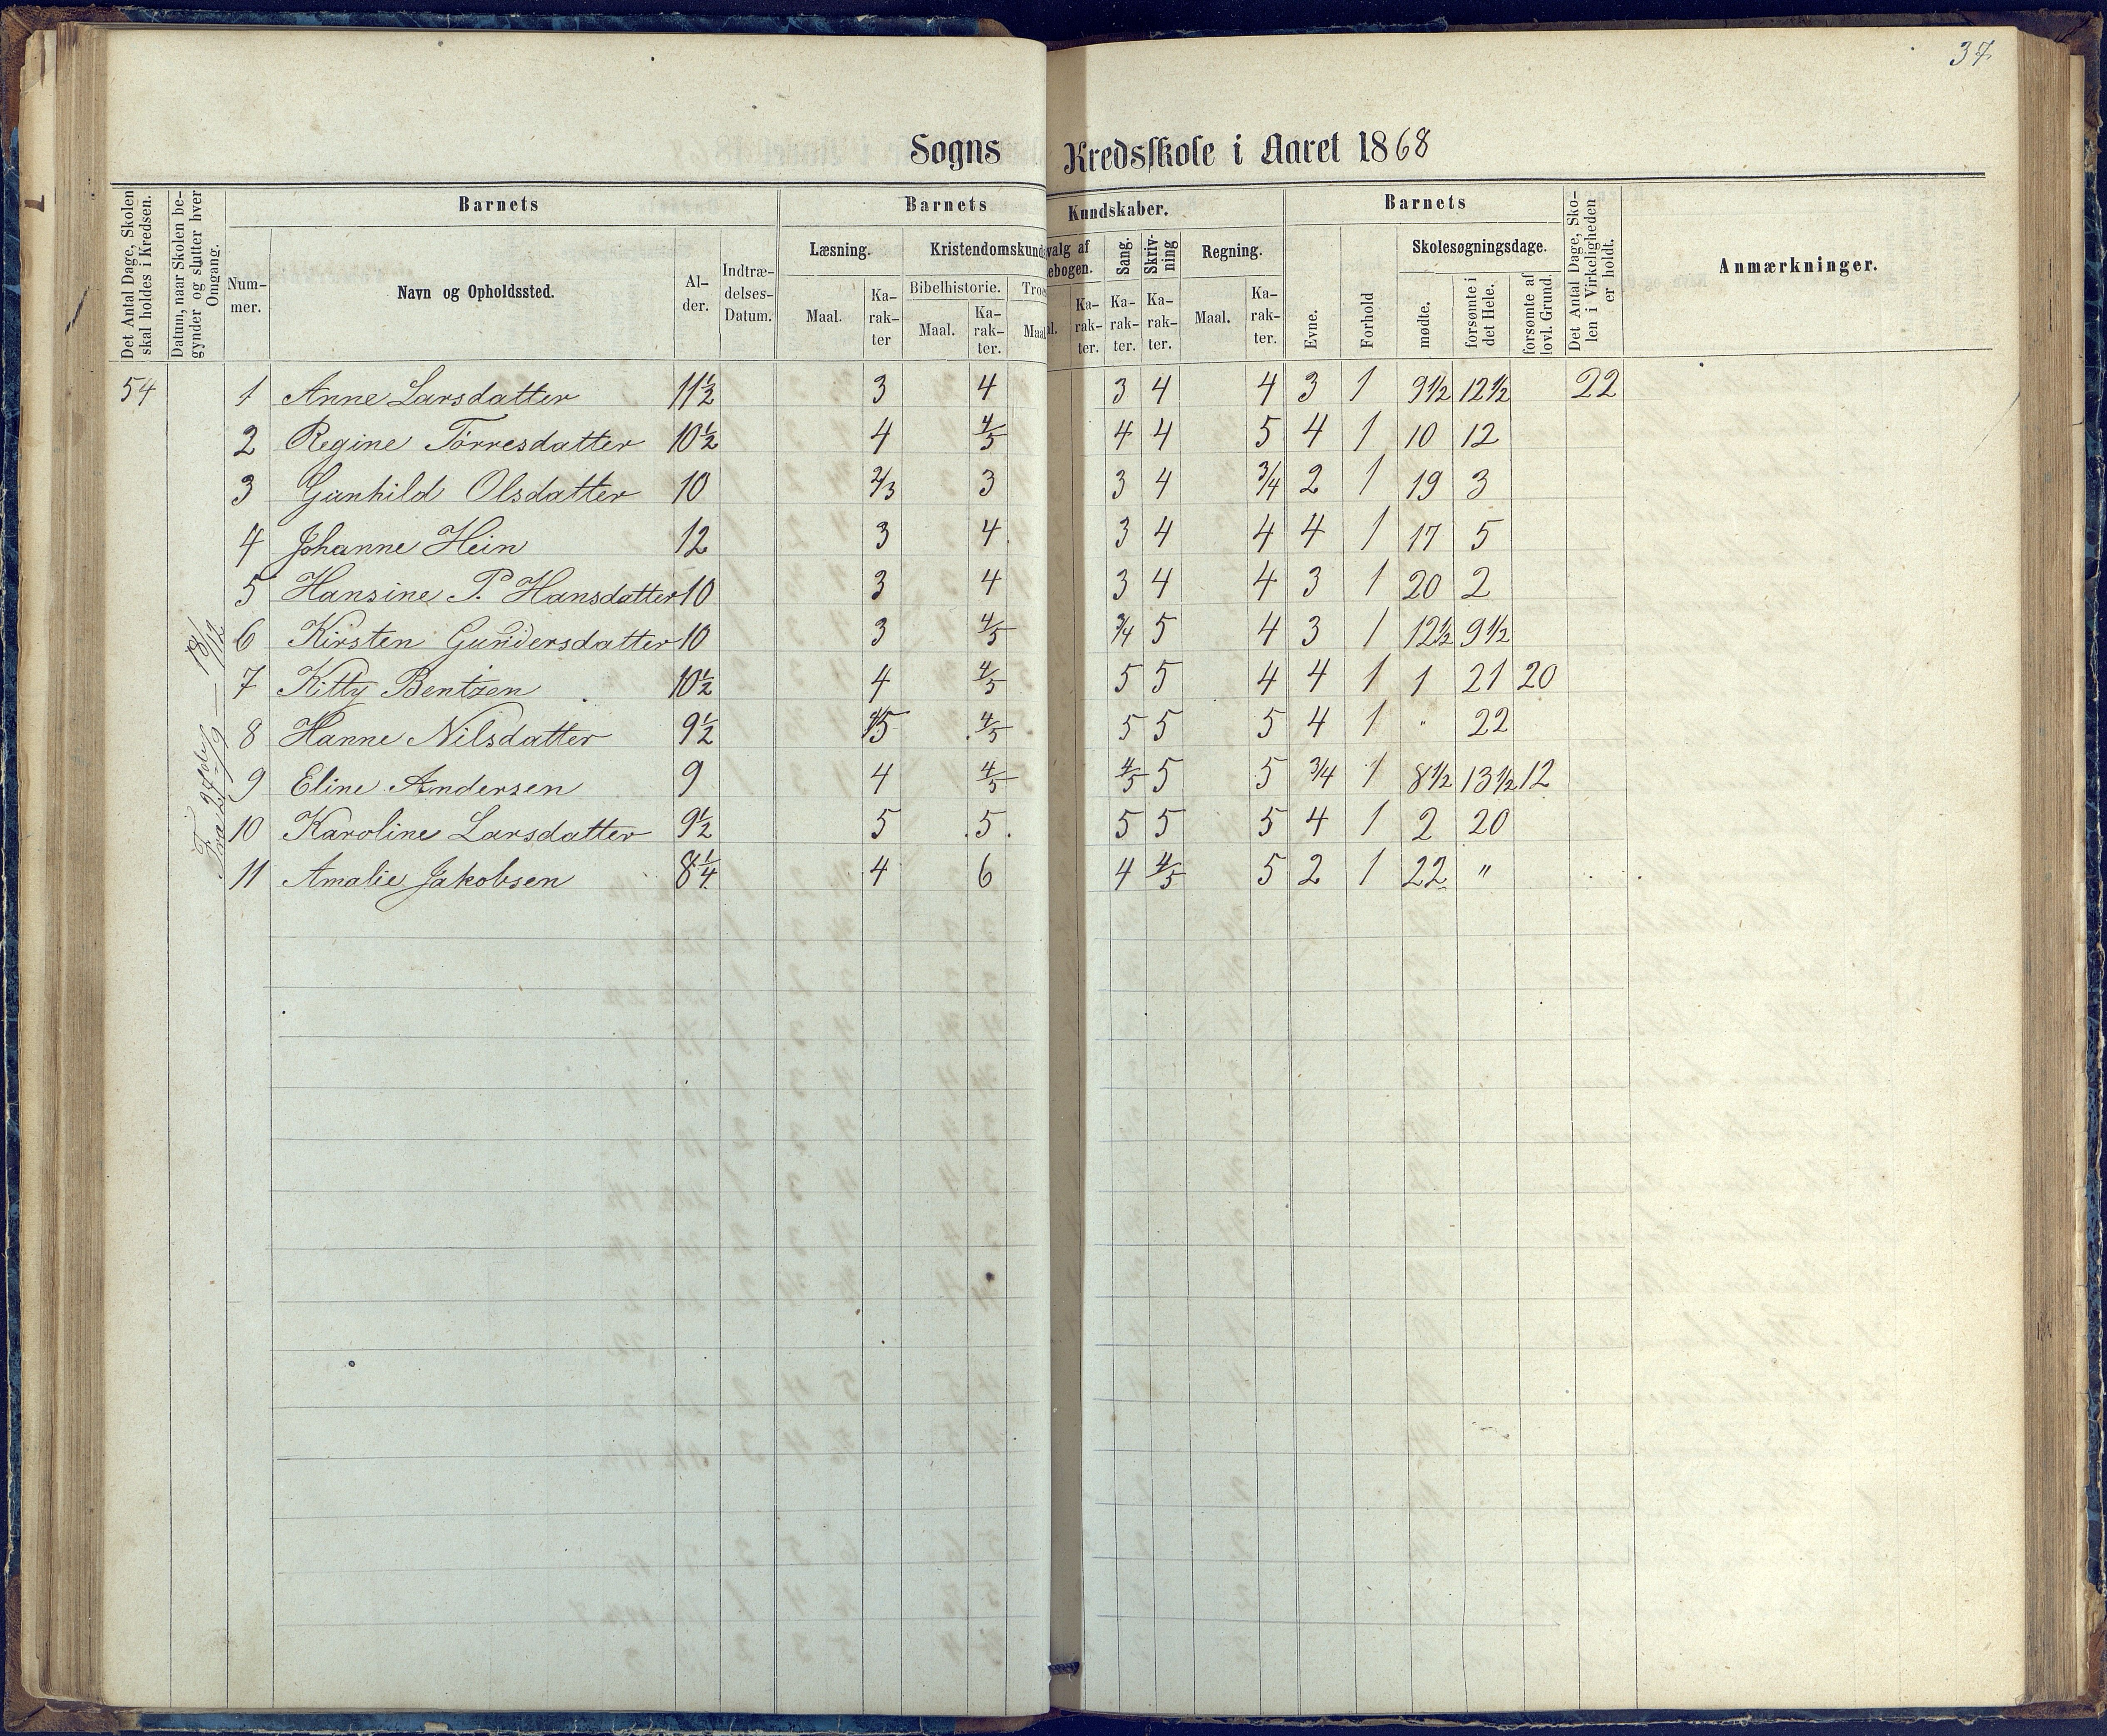 37
Sogns Kredsskole i Aaret 1868
Det Antal Dage, Skolen skal holdes i Kredsen.
Datum, naar Skolen begynder og slutter hver Omgang.
Barnets
Nummer.
Navn og Opholdssted.
Alder.
Indtrædelses-Datum.
Barnets Kundskaber.
Læsning.
Maal.
Karakter
Kristendomskunds
Bibelhistorie.
Maal.
Karakter.
Troe
Maal
valg af
ebogen.
al.
Karakter.
Sang.
Karakter.
Skrivning
Karakter.
Regning.
Maal.
Karakter.
Barnets
Evne.
Forhold
Skolesøgningsdage.
mødte.
forsømte i det Hele.
forsømte af lovl. Grund.
Det Antal Dage, Skolen i Virkeligheden er holdt.
Anmærkninger.
54 1 Anne Larsdatter 11½ 3 4 3 4 4 3 1 9½ 12½ 22
2 Regine Tørresdatter 10½ 4 4/5 4 4 5 4 1 10 12
3 Gunhild Olsdatter 10 2/3 3 3 4 3/4 2 1 19 3
4 Johanne Hein 12 3 4 3 4 4 4 1 17 5
5 Hansine P. Hansdatter 10 3 4 3 4 4 3 1 20 2
6 Kirsten Gundersdatter 10 3 4/5 3/4 5 4 3 1 12½ 9½
7 Kitty Bentzen 10½ 4 4/5 5 5 4 4 1 1 21 20
8 Hanne Nilsdatter 9½ 4/5 4/5 5 5 5 4 1 " 22
9 Eline Andersen 9 4 4/5 4/5 5 5 3/4 1 8½ 13½ 12
10 Karoline Larsdatter 9½ 5 5 5 5 5 4 1 2 20
11 Amalie Jakobsen 8¼ 4 6 4 4/5 5 2 1 22 "
Fra 24de/9 — 18/12